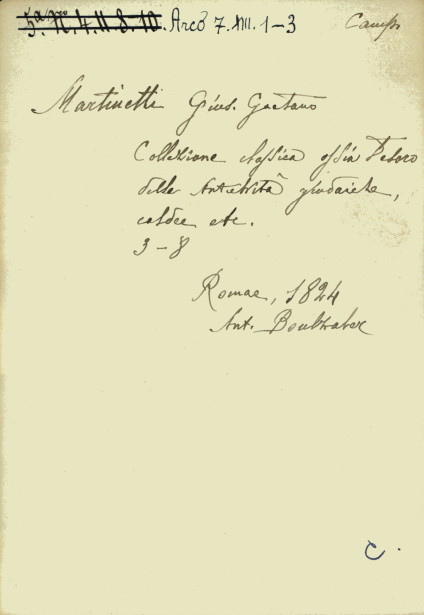 5ª gro N. 4. 11. 8-10. Arcò 7. VIII. 1-3 Camp.
Martinetti Gius. Gaetano
Collezione classica ossia Tesoro
delle Antichità giudaiche,
caldee etc.
3-8
Romae, 1824
Ant. Boulzaler
C.